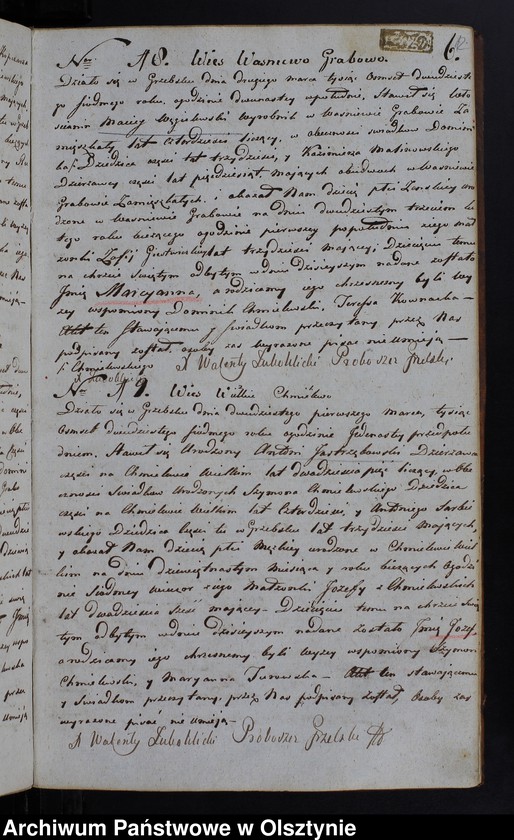 Nro 18. Wies Wasniewo Grabowo. 6.
Działo się w Grzebsku dnia drugiego marca tysiąc osmset dwudzieste-
go siodmego roku, godzinie dwunastey w południe, Stawił się Wło-
scianin Maciey wyrobnik w Wasniewie Grabowie Za-
mięszkały lat czterdziesci liczący, w obecnosci swiadkow Domini-
ka Dziedzica częsci lat trzydziesci, y Kazimierza
Dzierzawcy częsci lat pięćdziesiąt maiących obudwuch w Wasniewie
Grabowie Zamięszkałych, i okazał Nam dziecię płci Zenskiey uro-
dzone w Wasniewie Grabowie na dniu dwudziestym trzecim lu-
tego roku bieżącego o godzinie pierwszey popołudniu z iego mał-
zonki Zofij lat trzydziesci maiącey; Dziecięciu temu
na chrzcie Swiętym odbytym w dniu dzisieyszym nadane zostało
Imię Maryanna, a rodzicami iego chrzesnemi byli wy-
zey wspomniony Dominik Chmielewski, Teressa
Akt ten Stawaiącemu y swiadkom przeczytany przez Nas
podpisany został, osoby zas wyrazone pisac nieumieią
Chmielewskiego
X Walenty Proboszcz Grzebski
Nro 19. Wies Wielkie Chmielewo
Działo się w Grzebsku dnia dwudziestego pierwszego marca, tysiąc
osmset dwudziestego siodmego roku o godzinie Jedenastey przedpołu-
dniem. Stawił się Urodzony Antoni Jastrzębski Dzierzawca
częsci na Chmielewie Wielkim lat dwadziescia pięć liczący, w obe-
cnosci Swiadkow Urodzonych Szymona Chmielewskiego Dziedzica
częsci na Chmielewie Wielkim lat czterdziesci, y Antoniego
Dziedzica częsci te w Grzebsku lat trzydziesci maiących,
y okazał Nam dziecię płci Męzkiey urodzone w Chmielewie Wiel-
kim na dniu dziewiętnastym miesiąca y roku bieżących o godzi-
nie siodmey wieczor z iego Małzonki Jozefy z Chmielewskich
lat dwadziescia szesc maiącey. Dziecięciu temu na chrzcie Swię-
tym odbytym w dniu dzisieyszym nadane zostało Imię Jozef,
a rodzicami iego chrzesnemi byli wyzey wspomniony Szymon
Chmielewski, y Maryanna Turowska. Akt ten stawaiącemu
y Swiadkom przeczytany, przez Nas podpisany został, Osoby zas
wyrazone pisać nie umieią
X Walenty Proboszcz Grzebski
Archiwum Państwowe w Olsztynie